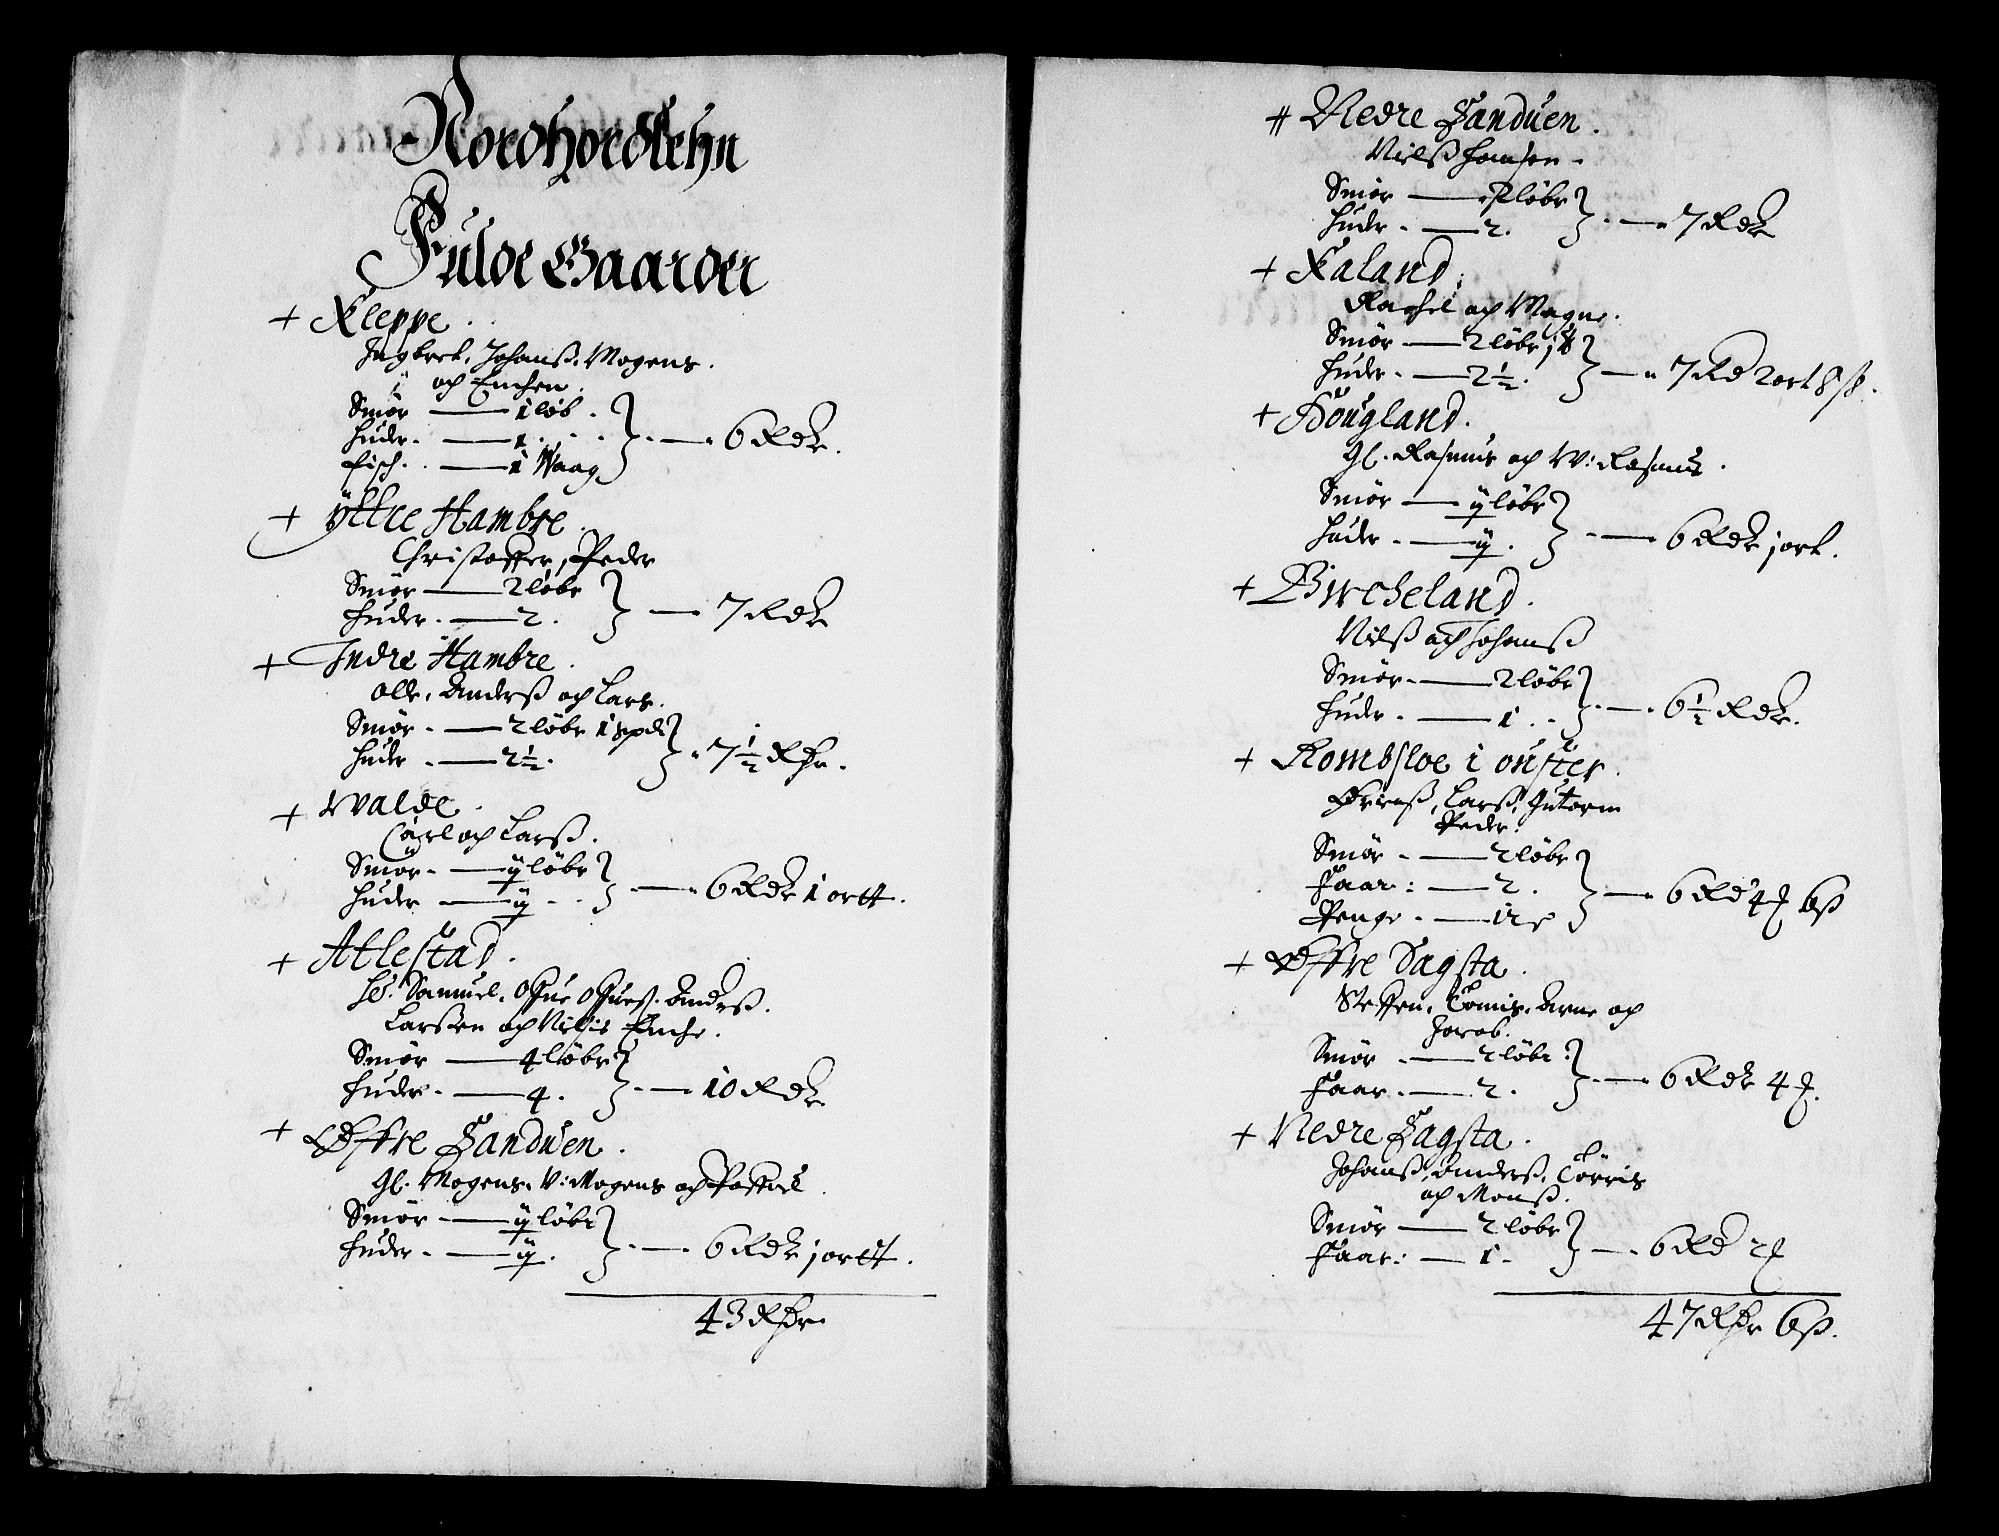 Nordhordlehn
Fulde Gaarder
+ Kleppe.
Ingbret, Johanß, Mogens.
och Enchen.
Smør — 1 løb.
Huder. — 1.
Fisch. — 1 Waag
6 Rdr.
+ Yttre Hambre.
Christoffer, Peder
Smør — 2 løbr
Huder. — 2.
7 Rdr
+ Indre Hambre.
Olle, Anderß och Lars.
Smør. — 2 løbr 1 spd
Huder. — 2½.
7½ Rdr.
+ Walde.
Carl och Larß.
Smør. — ij løbr
Huder — ij
6 Rdr 1 ortt.
+ Atlestad.
Hr. Samuel, Anderß.
Larßen och Enche.
Smør — 4 løbr
Huder. — 4.
10 Rdr
+ Øffre Sanduen.
Gl. Mogens, V: Mogens och
Smør — ij løbr
Huder. — ij.
6 Rdr j ortt.
43 Rdr
# Nedre Sanduen.
Nielß Hansen.
Smør — løbr
Huder. — 2.
7 Rdr
+ Kaland.
Rachel och Magne.
Smør — 2 løbr
Huder. — 2½.
7 Rd 2 ort 8 ß.
+ Hougland.
Gl. Rasmus och W: Rasmus.
Smør — ij løbr
Huder. — ij.
6 Rdr j ort.
+ Bircheland.
Nielß och Johanß
Smør. — 2 løbr
Huder. — 1.
6½ Rdr.
+ Rombsloe i ouster.
Larß, Gutorm
Peder.
Smør. — 2 løbr
Faar: — 2.
Penge. — 12 ß
6 Rd 4 6 ß
+ Øffre Sagsta.
Steffen, Tomis, Arne och
Jacob.
Smør. — 2 løbr:
Faar. — 2.
6 Rdr 4
+ Nedre Sagsta.
Johanß, Anderß, Torris
och Monß.
Smør — 2 løbr
Faar: — 1.
6 Rd 2
47 Rdr 6 ß.